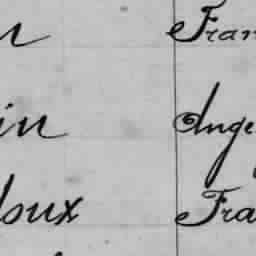 n Fran
in Ange
doux Fra